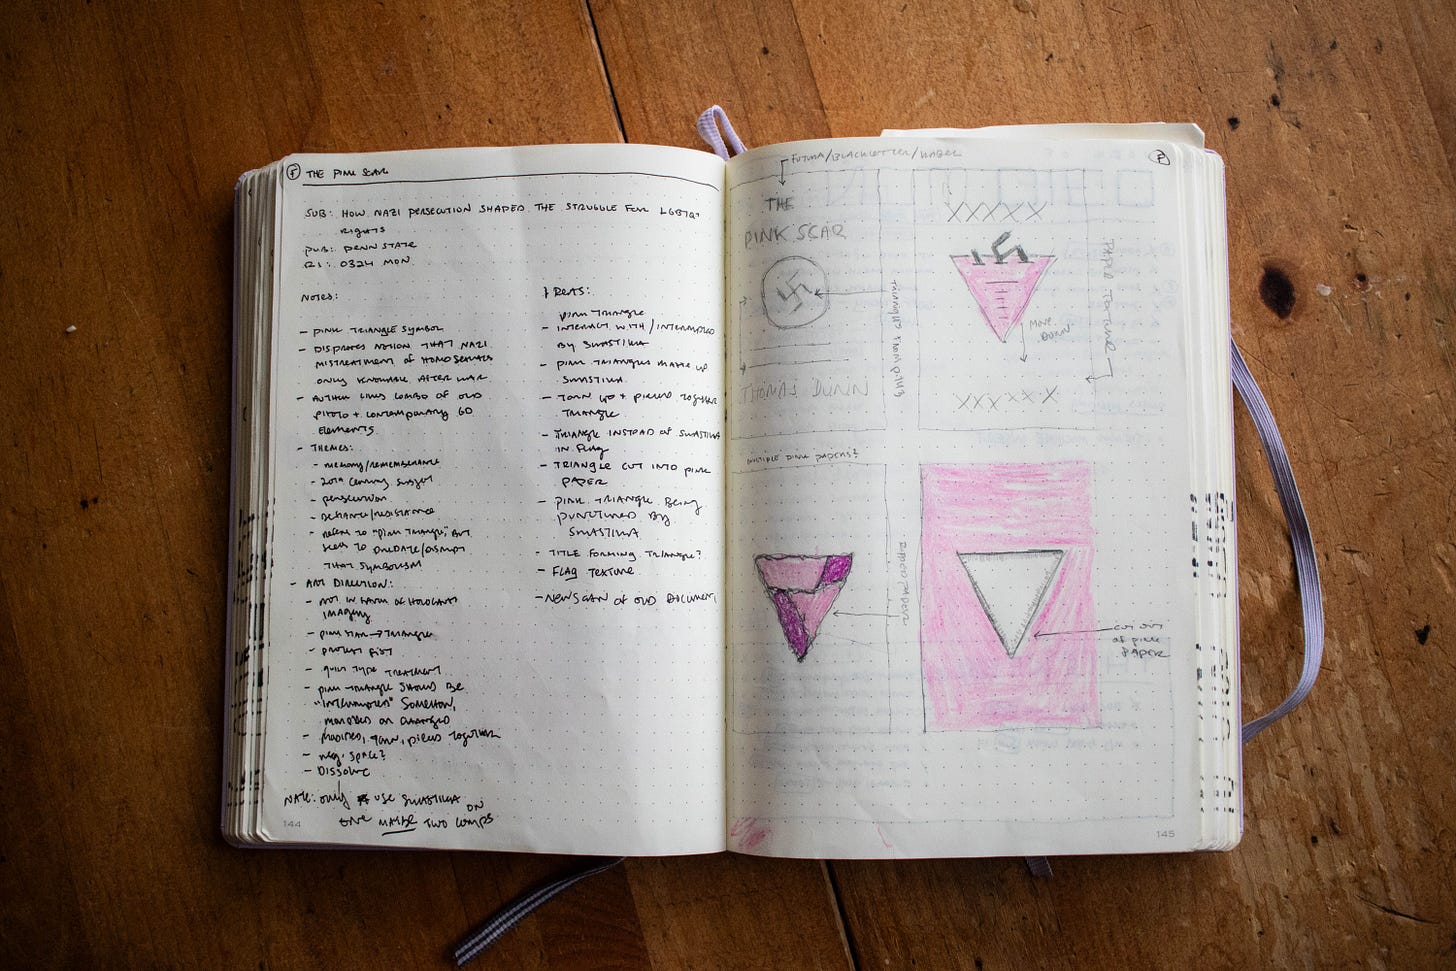 THE PINK SCAR
SUB: HOW NAZI PERSECUTION SHAPED THE STRUGGLE FOR LGBTQ+
RIGHTS
PUB: PENN STATE
R1: 0324 MON
NOTES:
- PINK TRIANGLE SYMBOL
- DISPROVES NOTION THAT NAZI
MISTREATMENT OF HOMOSEXUALS
ONLY KNOWABLE AFTER WAR
- AUTHOR LIKES COMBO OF OLD
PHOTO + CONTEMPORARY GD
ELEMENTS
- THEMES:
- MEMORY/REMEMBRANCE
- 20TH CENTURY SUBJECT
- PERSECUTION
- DEFIANCE/RESISTANCE
- REFERS TO "PINK TRIANGLE," BUT
SEEKS TO PREDATE/DISRUPT
THAT SYMBOLISM
- ART DIRECTION:
- NOT IN FAVOR OF HOLOCAUST
IMAGERY
- PINK STAR → TRIANGLES
- PROTEST FIST
- QUILT TYPE TREATMENT
- PINK TRIANGLE SHOULD BE
"INTERRUPTED" SOMEHOW,
MODIFIED OR CHANGED
- MODIFIED, TORN, PIECED TOGETHER
- NEG. SPACE?
- DISSOLVE
NOTE: ONLY USE SWASTIKA ON
ONE MAYBE TWO COMPS
144
IDEAS:
PINK TRIANGLE
- INTERACT WITH/INTERRUPTED
BY SWASTIKA
- PINK TRIANGLES MAKE UP
SWASTIKA
- TORN UP + PIECED TOGETHER
TRIANGLE
- TRIANGLE INSTEAD OF SWASTIKA
IN FLAG
- TRIANGLE CUT INTO PINK
PAPER
- PINK TRIANGLE BEING
PUNCTURED BY
SWASTIKA
- TITLE FORMING TRIANGLE?
- FLAG TEXTURE
- NEW SCAN OF OLD DOCUMENT
FUTURA/BLACKLETTER/KABEL
THE
PINK SCAR
TRIANGLES FROM P.143
THOMAS DUNN
XXXXX
MOVE
DOWN
PAPER TEXTURE
XXXXXX
MULTIPLE PINK PAPERS?
RIPPED PAPER
CUT OUT
OF PINK
PAPER
145